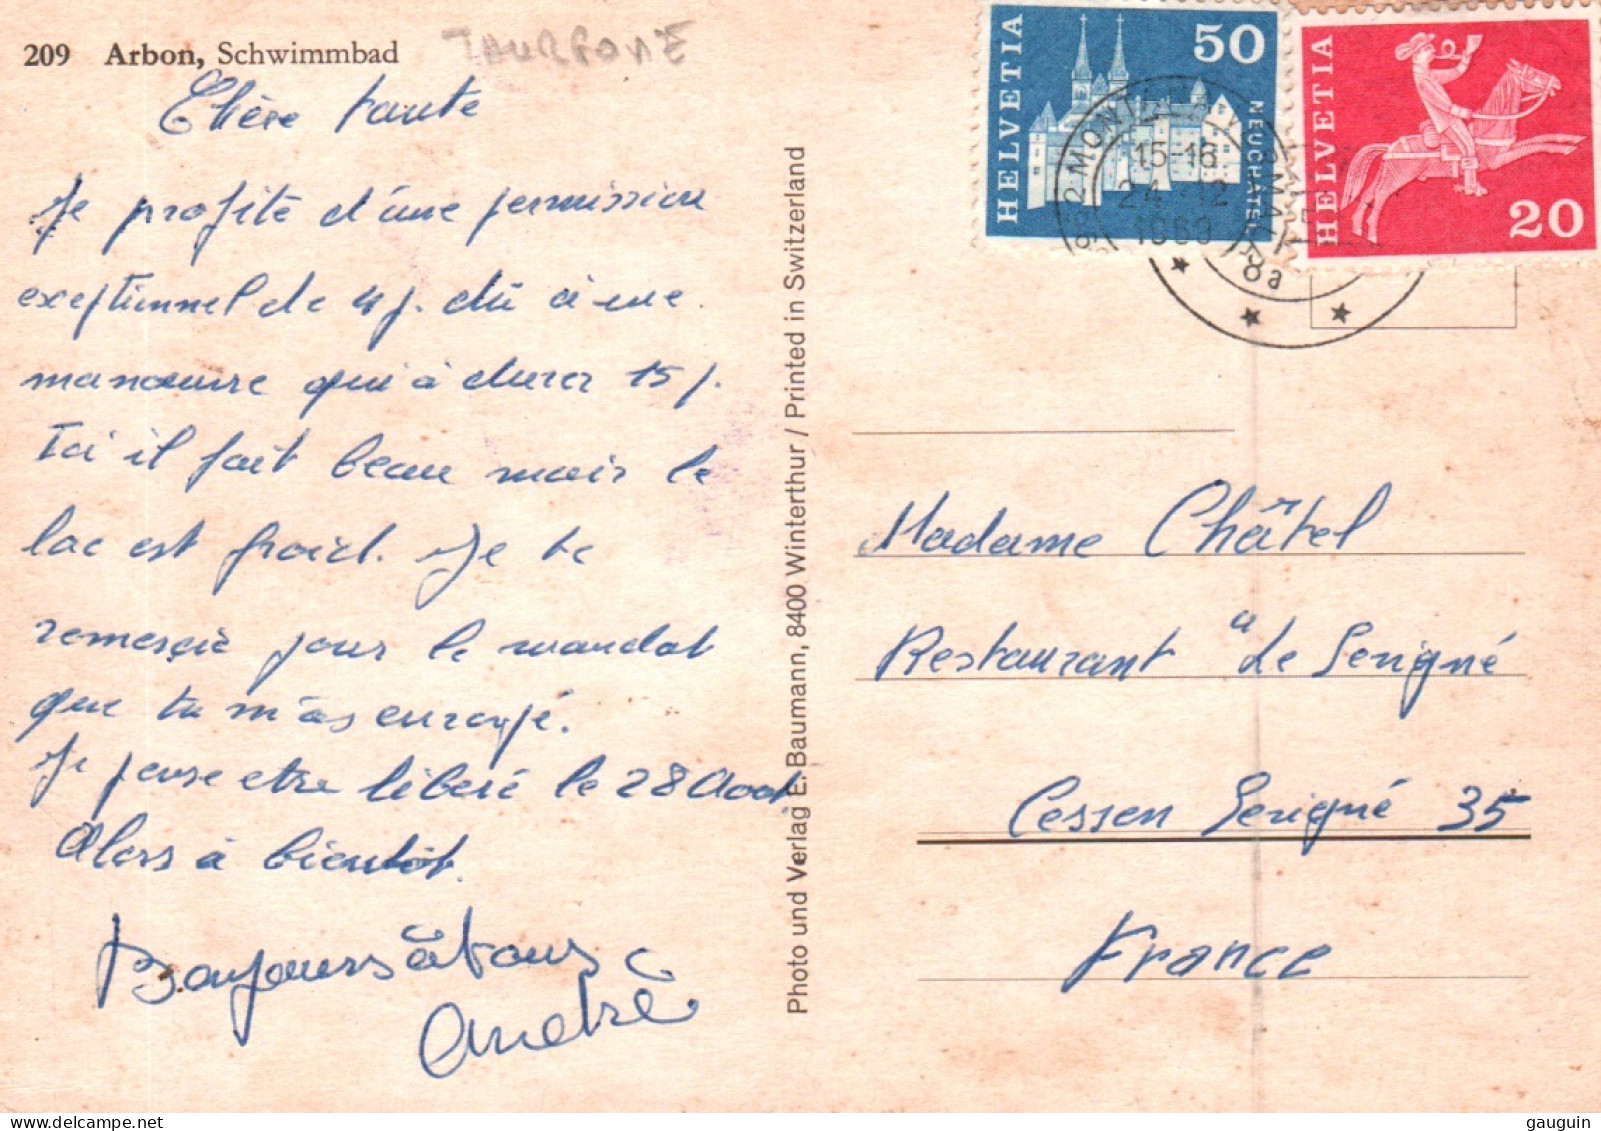 209 Arbon, Schwimmbad
Chère tante
Je profite d'une permission
exceptionnel de 4 j. dû à une
manoeuvre qui à durer 15 j.
Ici il fait beau mais le
lac est froid. Je te
remerçie pour le mandat
que tu m'as envoyé.
Je pense etre libéré le 28 Août
Alors à bientôt.
Bonjours à tous
André
Photo und Verlag E. Baumann, 8400 Winterthur / Printed in Switzerland
HELVETIA 50 NEUCHÂTEL
HELVETIA 20
15-16
24.-12
1969
8a
Madame Châtel
Restaurant "Le Serigné
Cessen Serigné 35
France
gauguin